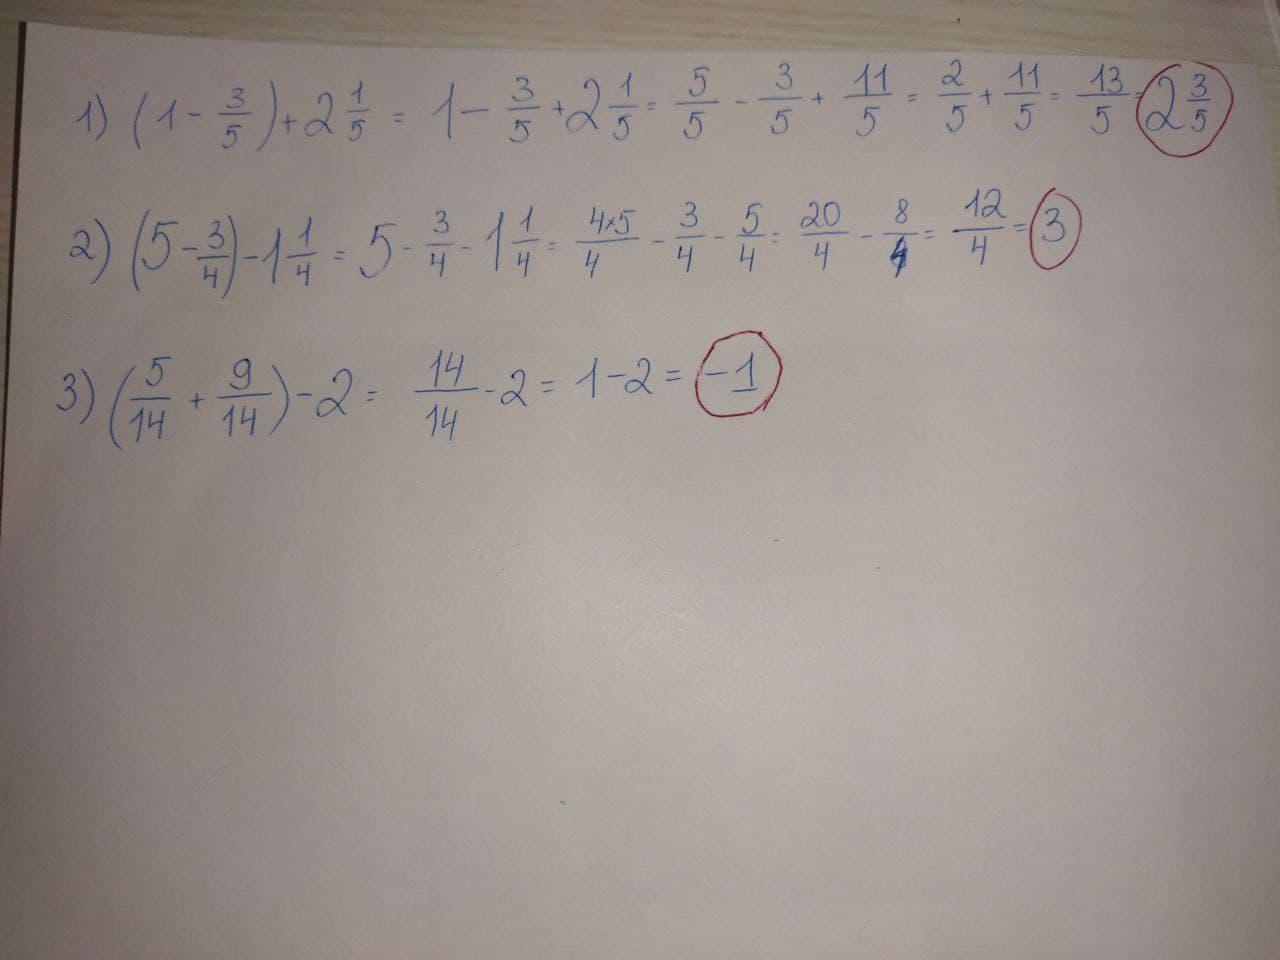 1) (1 - 3/5) + 2 1/5 = 1 - 3/5 + 2 1/5 = 5/5 - 3/5 + 11/5 = 2/5 + 11/5 = 13/5 = 2 3/5
2) (5 - 3/4) - 1 1/4 = 5 - 3/4 - 1 1/4 = 4×5/4 - 3/4 - 5/4 = 20/4 - 8/4 = 12/4 = 3
3) (5/14 + 9/14) - 2 = 14/14 - 2 = 1 - 2 = -1